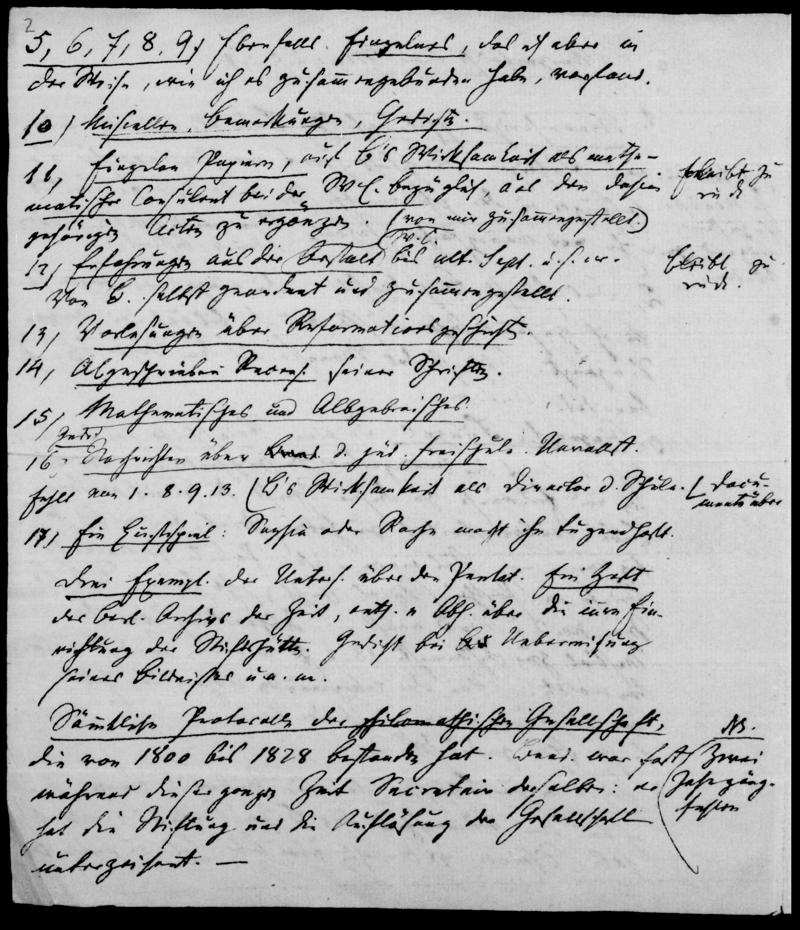 2
5, 6, 7, 8, 9, Ebenfalls Einzelnes, das ich aber in
der Weise, wie ich es zusammengebunden habe, vorfand.
10) Miscellen, Bemerkungen, Gedichte.
11, Einzelne Papiere, auf B's Wirksamkeit als mathe-
matischer Consulent bei der W.C. bezüglich, aus den dazu
gehörigen Acten zu ergänzen. (von mir zusammengestellt.)
bleibt zu
rück
12, Erfahrungen aus der Anstalt bis ult. Sept. u.s.w.
W.C.
Von B. selbst geordnet und zusammengestellt.
bleibt zu
rück.
13, Vorlesungen über Reformationsgeschichte.
14, Abgeschriebene Recens. seiner Schriften.
15, Mathematisches und Allgebraisches.
16, Nachrichten über d. jüd. Freischule. Unvollst.
fehlt von 1. 8. 9. 13. (B's Wirksamkeit als Director d. Schule.
Docu-
mente über
17, Ein Lustspiel: Sophie oder Rache macht ihn tugendhaft.
Drei Exempl. der Unters. über den Pentat. Ein Heft
des Berl. Archivs der Zeit, enth. e Abh. über die innre Ein-
richtung der Stiftshütte. Gedicht bei Ueberreichung
seines Bildnisses u. a. m.
Sämtliche Protocolle der philomathischen Gesellschaft,
die von 1800 bis 1828 bestanden hat. Bend. war fast
während dieser ganzen Zeit Secretair derselben: er
hat die Stiftung und die Auflösung der Gesellschaft
unterzeichnet. —
NB.
Zwei
Jahrgänge
fehlen